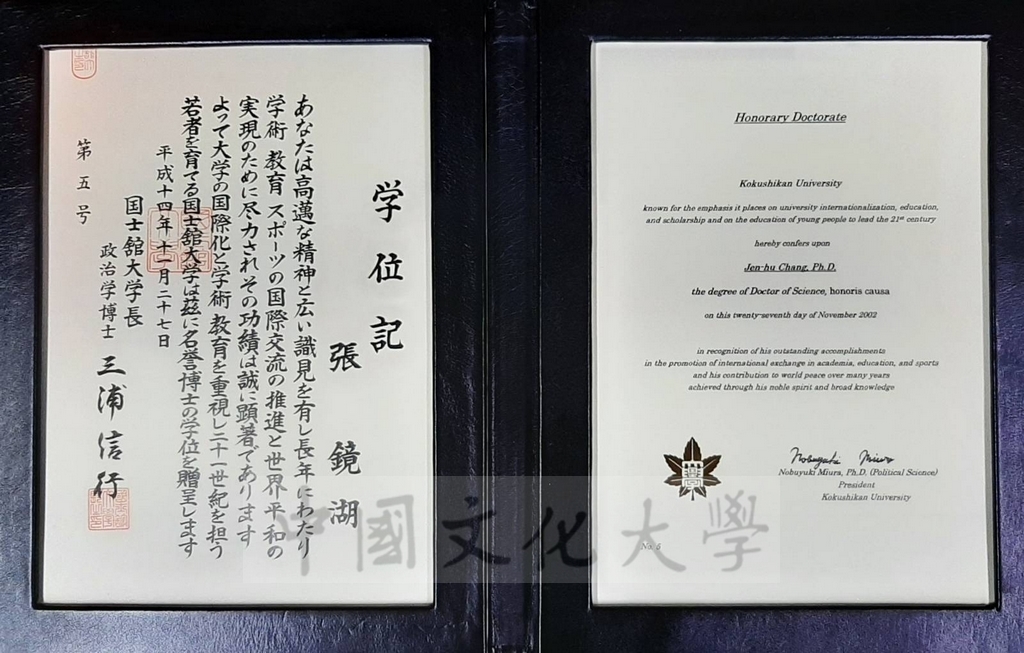 学位記
張鏡湖
あなたは高邁な精神と広い識見を有し長年にわたり
学術 教育 スポーツの国際交流の推進と世界平和の
実現のために尽力されその功績は誠に顕著であります
よって大学の国際化と学術 教育を重視し二十一世紀を担う
若者を育てる国士舘大学は茲に名誉博士の学位を贈呈します
平成十四年十一月二十七日
国士舘大学長
政治学博士 三浦信行
第五号
Honorary Doctorate
Kokushikan University
known for the emphasis it places on university internationalization, education,
and scholarship and on the education of young people to lead the 21st century
hereby confers upon
Jen-hu Chang, Ph.D.
the degree of Doctor of Science, honoris causa
on this twenty-seventh day of November 2002
in recognition of his outstanding accomplishments
in the promotion of international exchange in academia, education, and sports
and his contribution to world peace over many years
achieved through his noble spirit and broad knowledge
Nobuyuki Miura
Nobuyuki Miura, Ph.D. (Political Science)
President
Kokushikan University
No. 5
中國文化大學